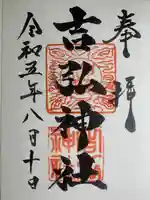 奉拝
吉弘神社
令和五年八月十日